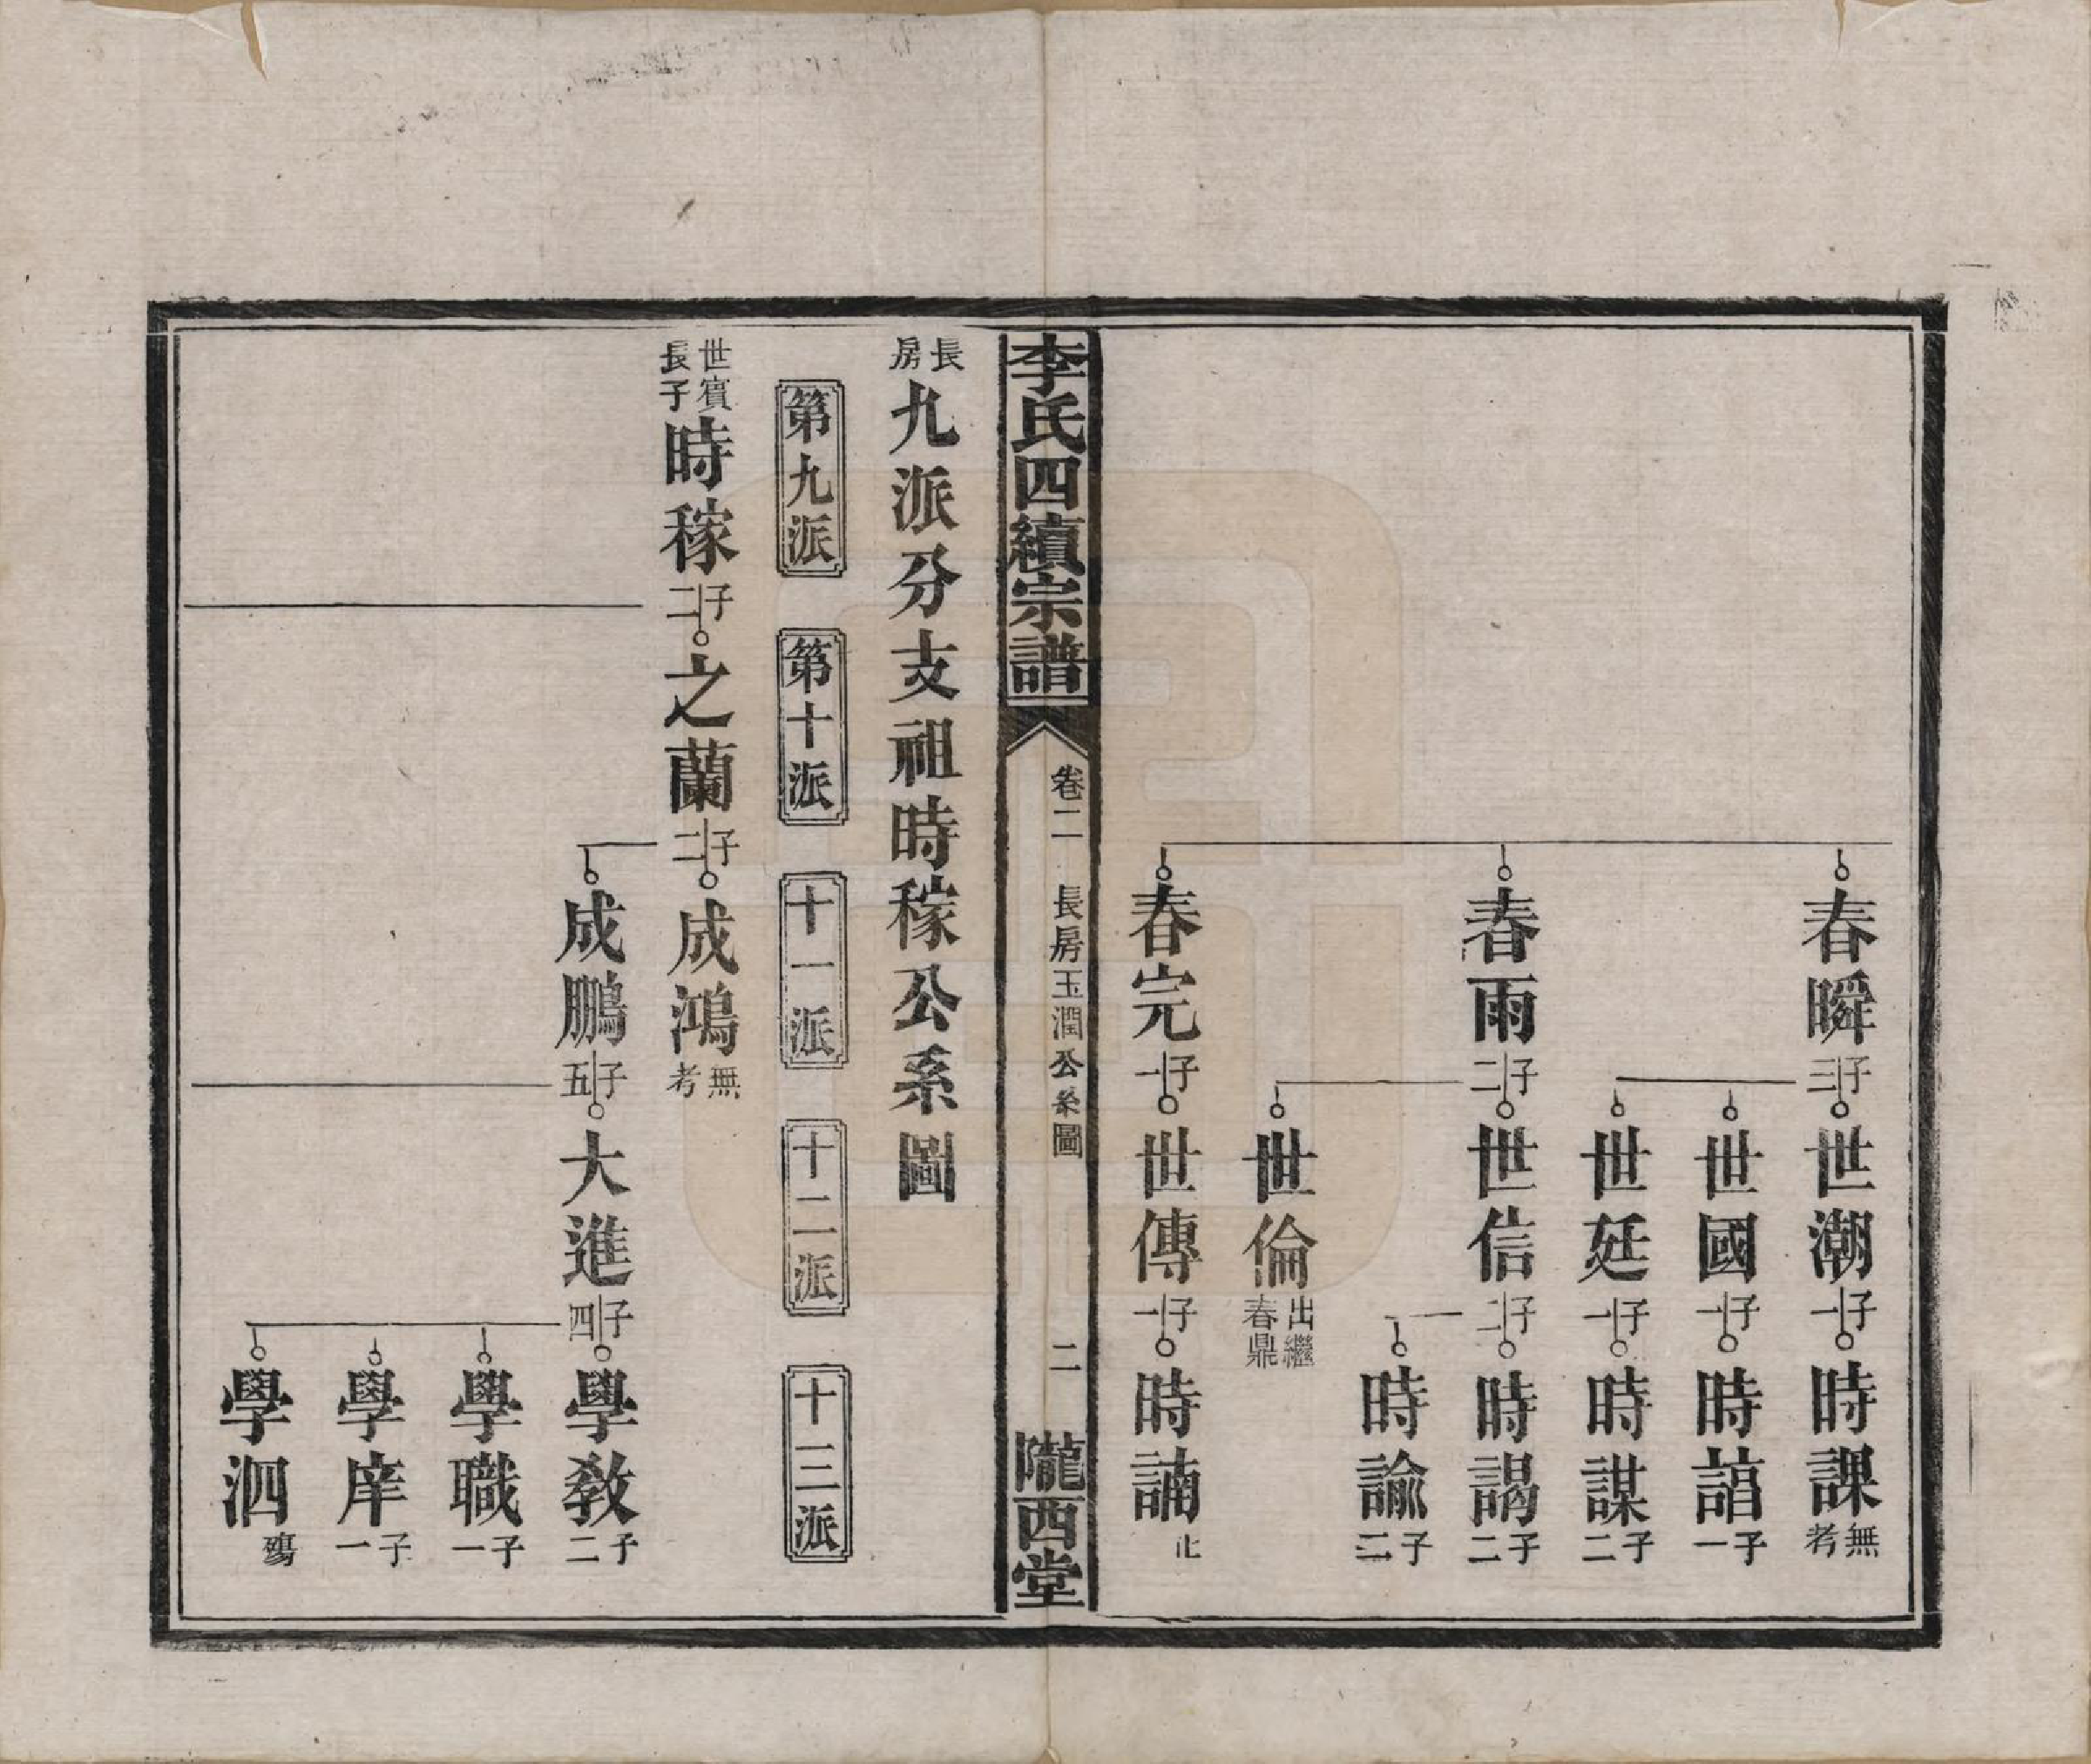 春瞬 子三 世潮 子一 時課 無考
世國 子一 時誩 子一
世延 子一 時謀 子二
春雨 子二 世信 子二 時謁 子二
時諭 子二
世倫 出繼春鼎
春完 子一 世傳 子一 時諵 止
李氏四續宗譜 卷二 長房玉潤公系圖 二 隴西堂
長房九派分支祖時稼公系圖
第九派 第十派 十一派 十二派 十三派
世賓長子 時稼 子二 之蘭 子二 成鴻 無考
成鵬 子五 大進 子四 學教 子二
學職 子一
學庠 子一
學泗 殤